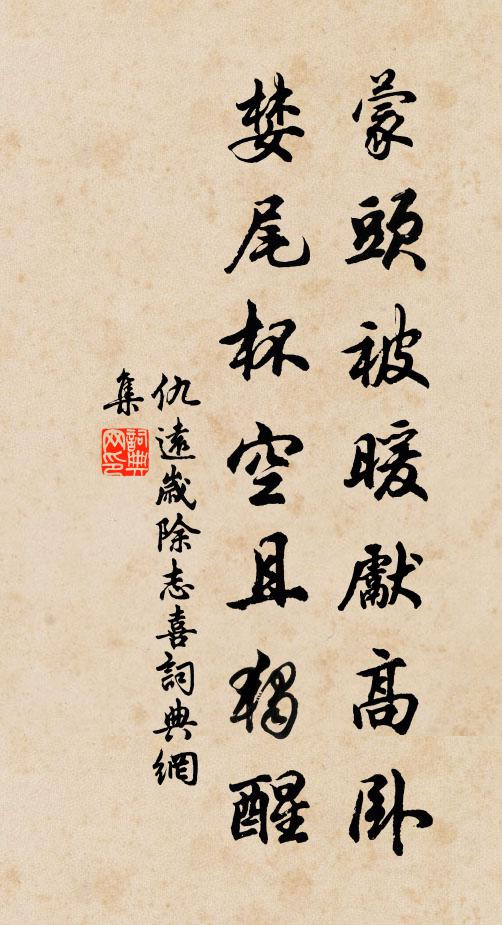 蒙頭被暖獻高卧
婪尾杯空且獨醒
仇遠歲除志喜詞典網
集
詞典網印